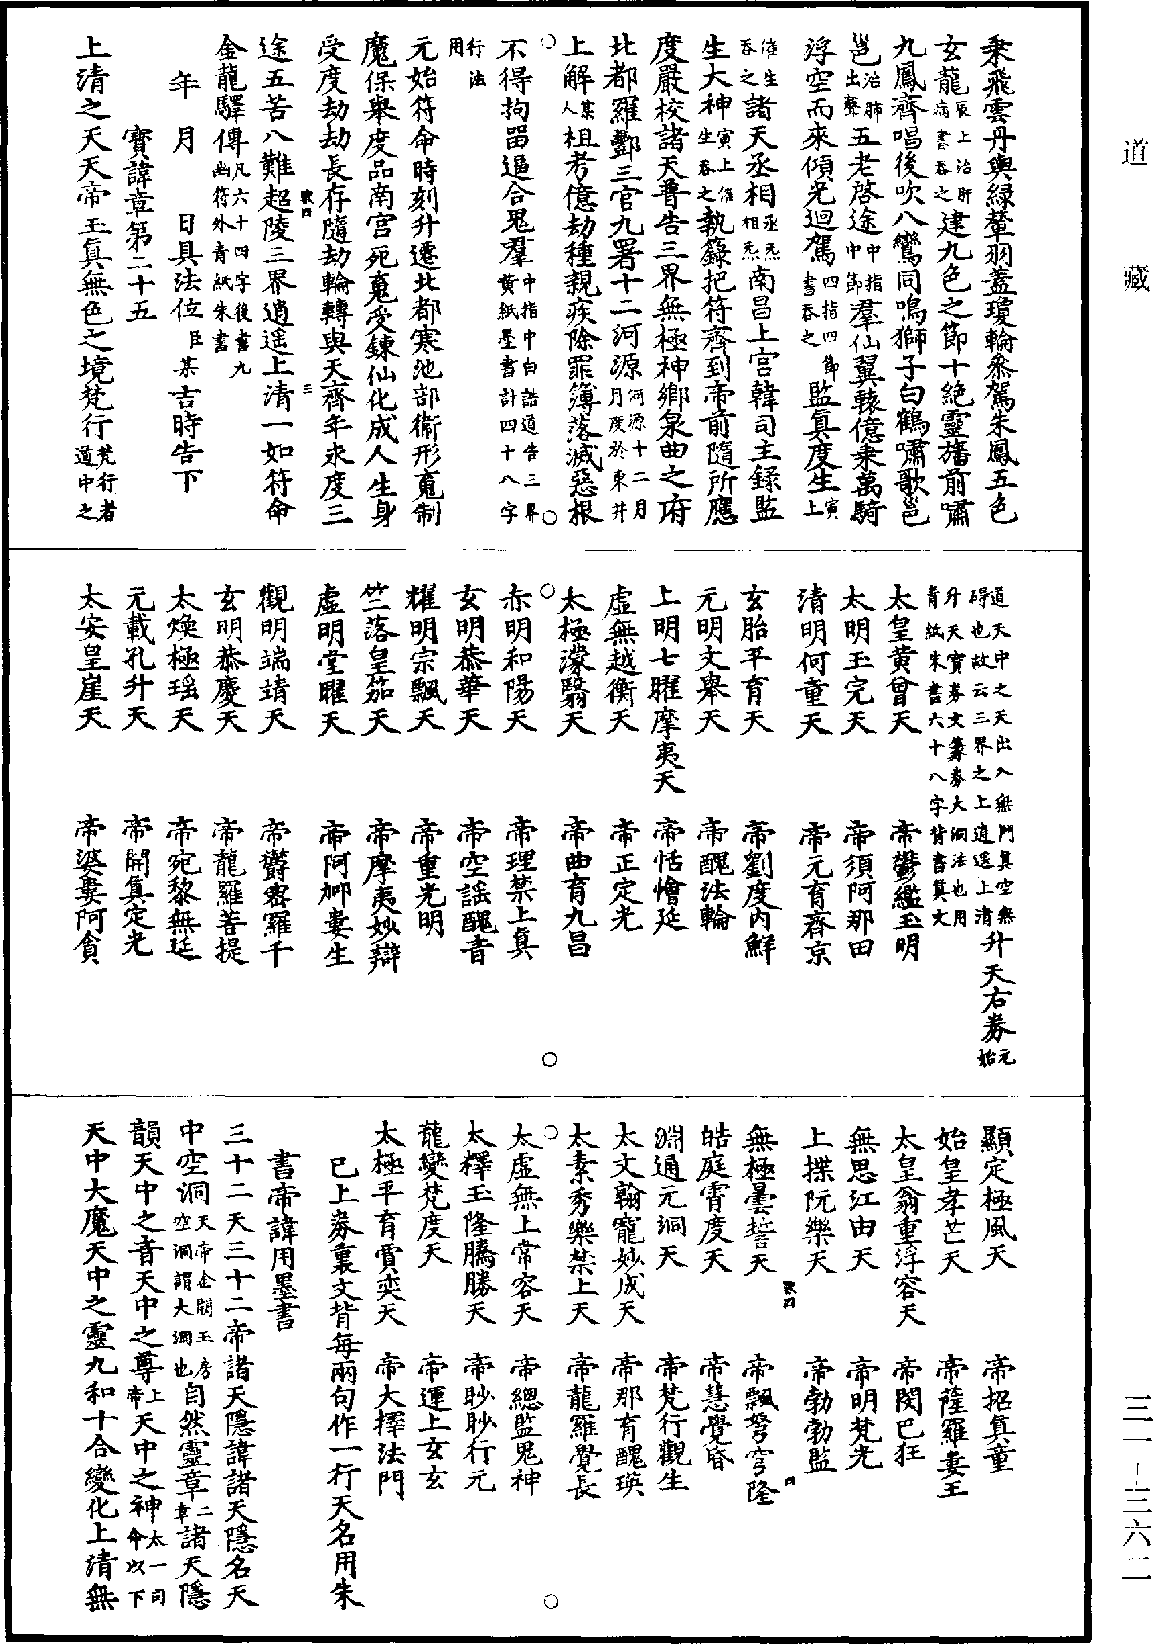 乘飛雲丹輿綠輦羽蓋瓊輪驂駕朱鳳五色
玄龍辰上治肝病書吞之建九色之節十絕靈旛前嘯
九鳳齊唱後吹八鸞同鳴獅子白鶴嘯歌邕
邕治肺出聲五老啓途中指中節羣仙翼轅億乘萬騎
浮空而來傾光迴駕四指四節書吞之監真度生寅上
催生吞之諸天丞相丞無相無南昌上宮韓司主錄監
生大神寅上催生吞之執籙把符齊到帝前隨所應
度嚴校諸天普告三界無極神鄉泉曲之府
北都羅酆三官九署十二河源河源十二月月度於東井
上解某人祖考億劫種親疾除罪簿落滅惡根
不得拘留逼合鬼羣中指中白誥道告三界黃紙墨書計四十八字
行法用
元始符命時刻升遷北都寒池部衛形䰟制
魔保舉度品南宮死䰟受鍊仙化成人生身
受度劫劫長存隨劫輪轉與天齊年永度三
途五苦八難超陵三界逍遙上清一如符命
金龍驛傳凡六十四字後書九幽符外青紙朱書
年　月　日具法位臣某吉時告下
寶諱章第二十五
上清之天天帝玉真無色之境梵行梵行者道中之
道天中之天出入無門真空無碍也故云三界之上逍遙上清升天右券元始
升天寶券文篆券大洞法也用青紙朱書六十八字背書真文
太皇黄曾天　帝鬱繿玉明
太明玉完天　帝須阿那田
清明何童天　帝元育齊京
玄胎平育天　帝劉度内鮮
元明文舉天　帝醜法輪
上明七曜摩夷天　帝恬憺延
虛無越衡天　帝正定光
太極濛翳天　帝曲育九昌
赤明和陽天　帝理禁上真
玄明恭華天　帝空謡醜音
耀明宗飄天　帝重光明
竺落皇笳天　帝摩夷妙辯
虛明堂曜天　帝阿𨚗婁生
觀明端靖天　帝欝密羅千
玄明恭慶天　帝龍羅菩提
太煥極瑶天　帝宛黎無延
元載孔升天　帝開真定光
太安皇崖天　帝婆婁阿貪
顯定極風天　帝招真童
始皇孝芒天　帝薩羅婁王
太皇翁重浮容天　帝閔巴狂
無思江由天　帝明梵光
上揲阮樂天　帝勃勃監
無極曇誓天　帝飄弩穹隆
皓庭霄度天　帝慧覺昏
淵通元洞天　帝梵行觀生
太文翰寵妙成天　帝那育醜瑛
太素秀樂禁上天　帝龍羅覺長
太虛無上常容天　帝總監鬼神
太釋玉隆騰勝天　帝眇眇行元
龍變梵度天　帝運上玄玄
太極平育賈奕天　帝大擇法門
已上券裏文背每兩句作一行天名用朱
書帝諱用墨書
三十二天三十二帝諸天隱諱諸天隱名天
中空洞天帝金闕玉房空洞謂大洞也自然靈章二章諸天隱
韻天中之音天中之尊上帝天中之神太一司命以下
天中大魔天中之靈九和十合變化上清無
道藏
三一—三六二